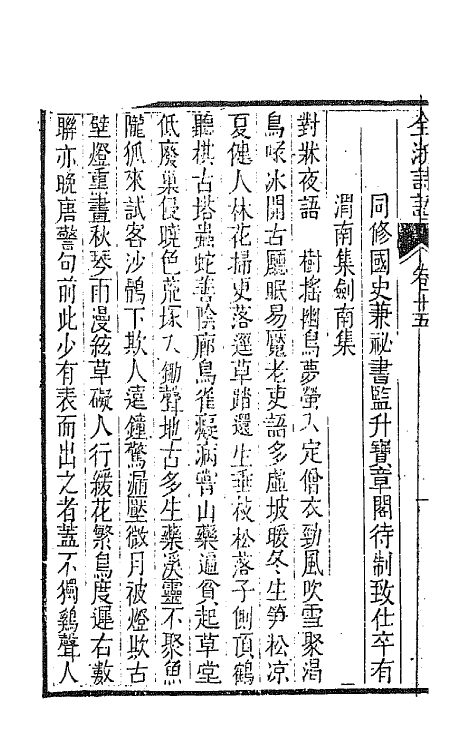 全浙詩話 卷十五
同修國史兼祕書監升寶章閣待制致仕卒有
渭南集劍南集
對牀夜語 樹搖幽鳥夢螢入定僧衣勁風吹雪聚渴
鳥啄冰開古廳眠易魘老吏語多虛坡暖冬生笋松凉
夏健人林花掃更落逕草踏還生垂枝松落子側頂鶴
聽棋古塔蟲蛇善陰廊鳥雀癡病嘗山藥遍貧起草堂
低廢巢侵曉色荒塚入鋤聲地古多生藥溪靈不聚魚
隴狐來試客沙鶻下欺人遠鐘驚漏壓微月被燈欺古
壁燈熏畫秋琴雨漫絃草礙人行緩花繁鳥度遲右數
聯亦晩唐警句前此少有表而出之者蓋不獨鷄聲人